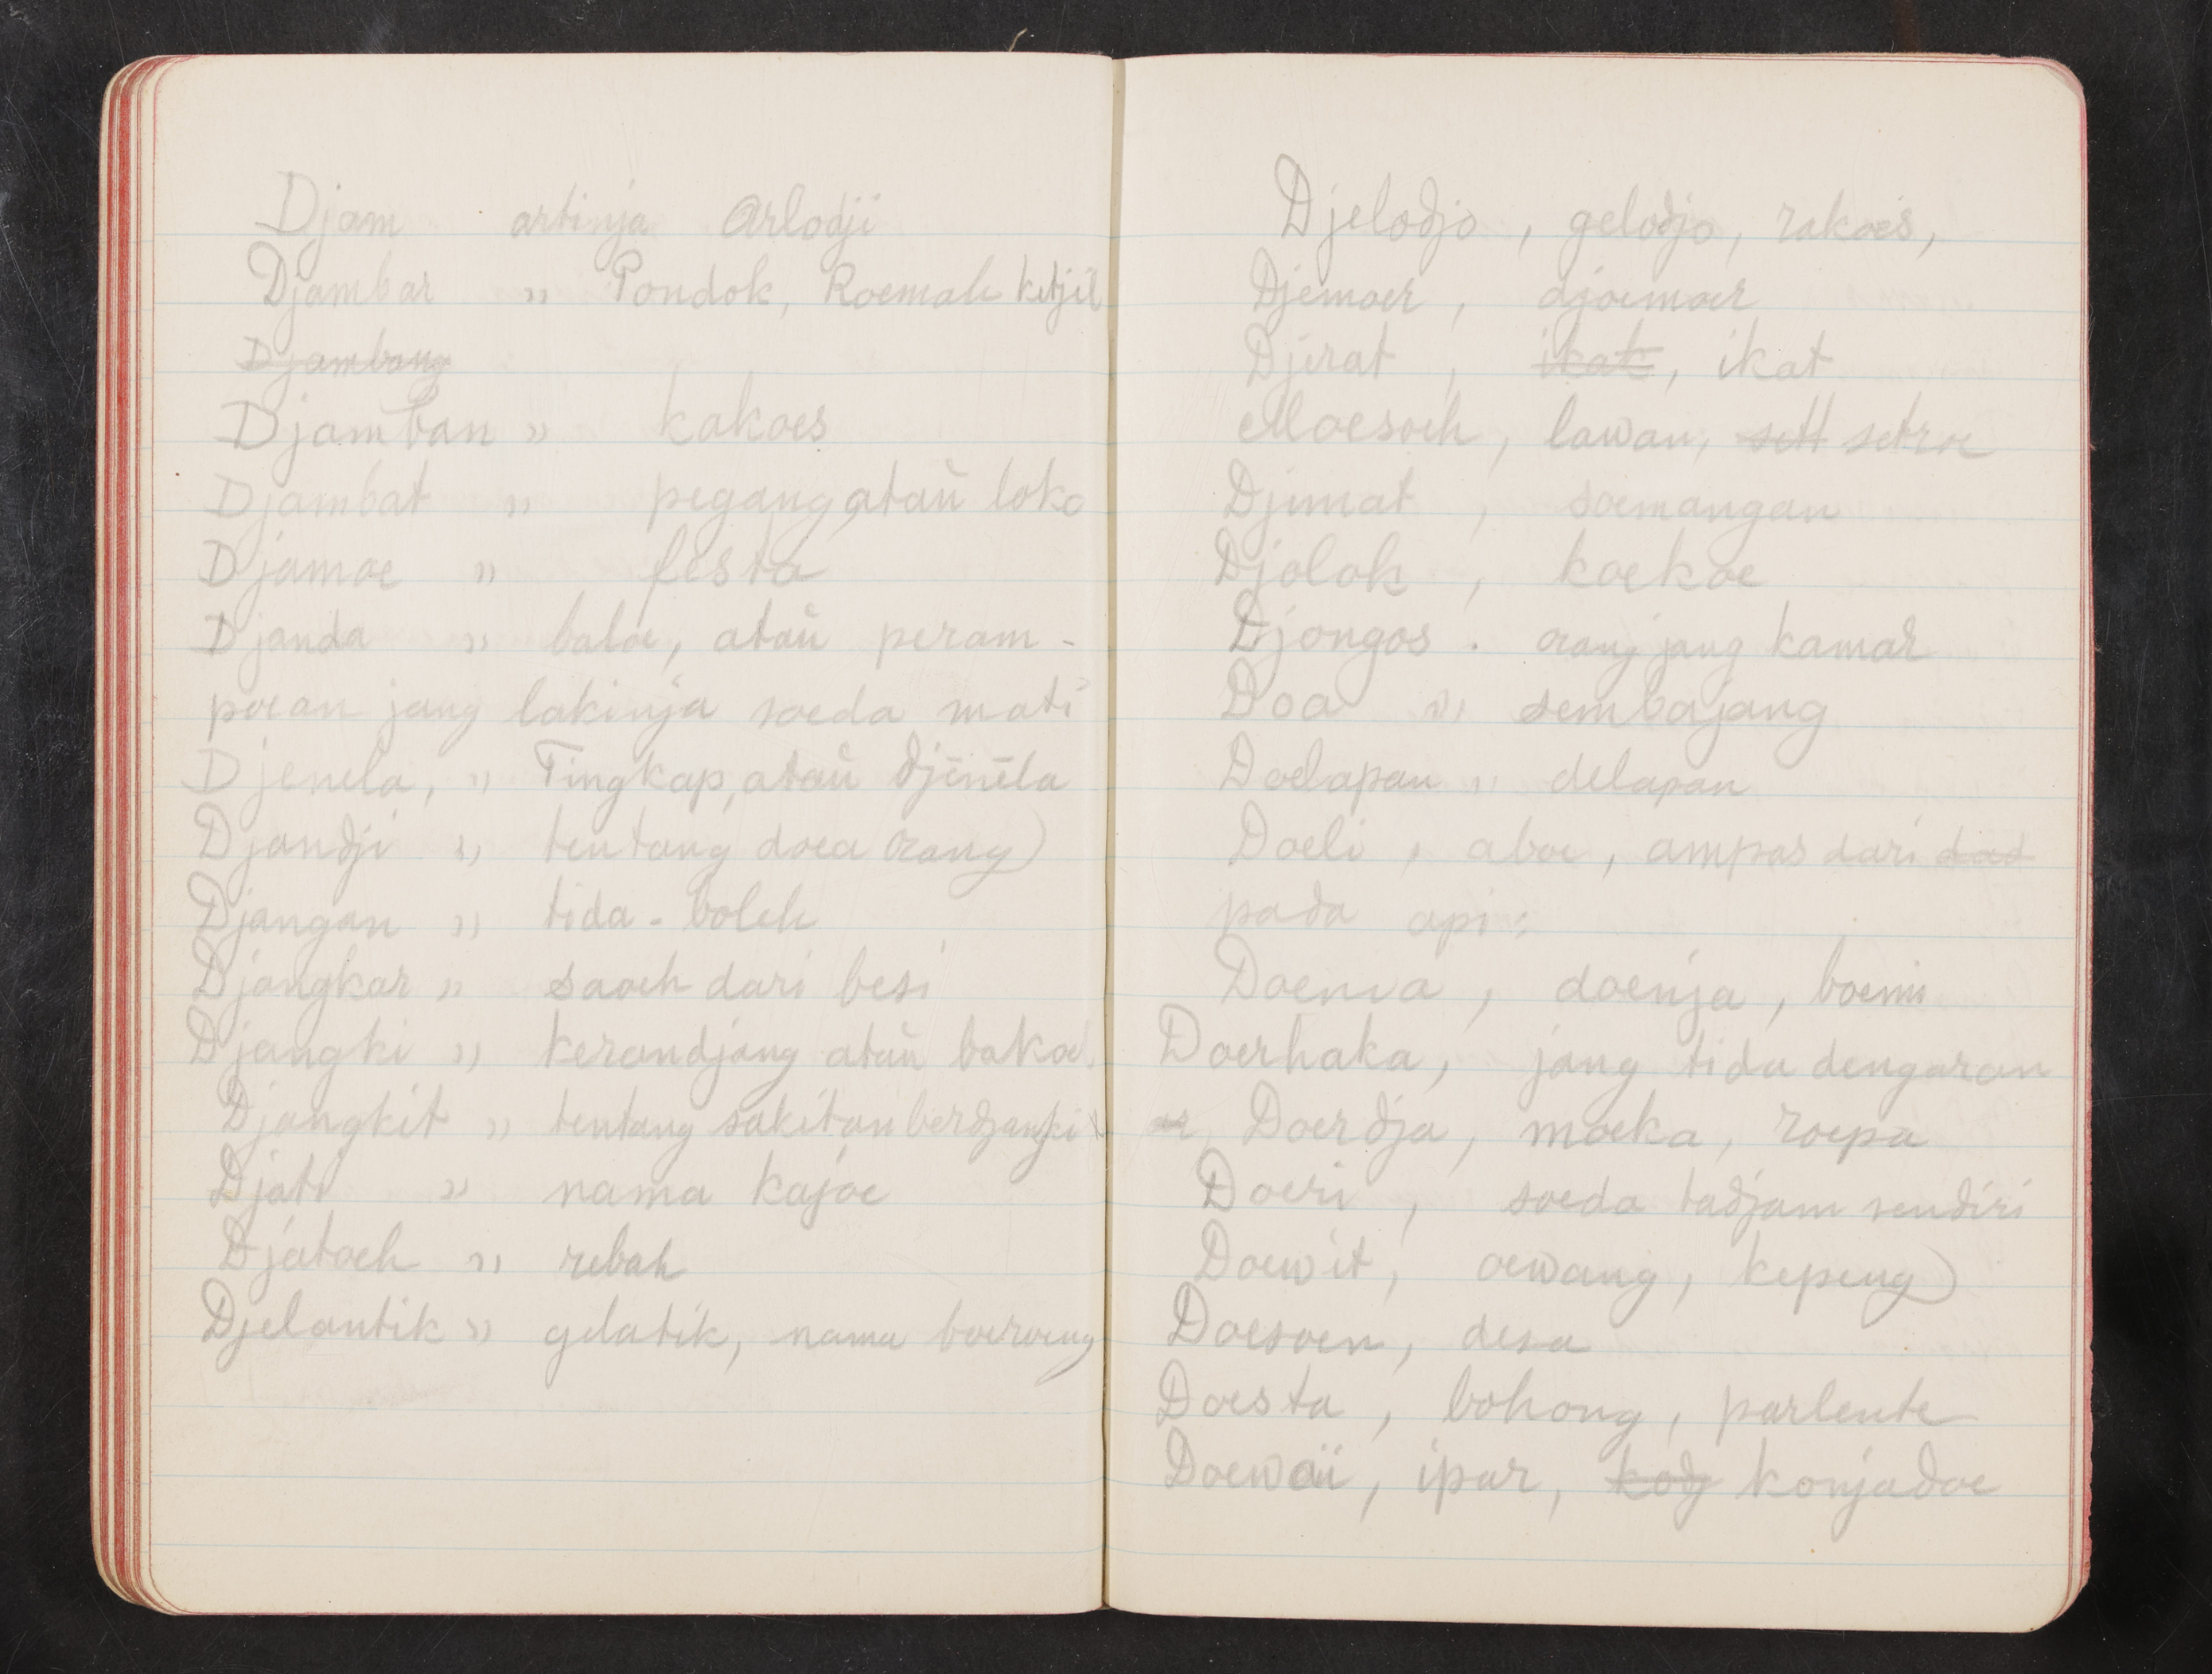 Djam artinja Arlodji
Djambar " Pondok, Roemah ketjil
Djambang
Djamban " kakoes
Djambat " pegang atau loko
Djamoe " festa
Djanda " baloe, atau peram-
poean jang lakinja soeda mati
Djenela, " Tingkap, atau djēnēla
Djandji " tentang doea orang)
Djangan " tida-boleh
Djangkar " saoeh dari besi
Djangki " kerandjang atau bakoel
Djangkit " tentang sakitan berdjangkit
Djati " nama kajoe
Djatoeh " rebah
Djelantik " gelatik, nama boeroeng
Djelodjo, gelodjo, rakoes,
Djemoer, djoemoer
Djerat, ikat, ikat
Moesoeh, lawan, sett setroe
Djimat, soemangan
Djolok, koekoe
Djongos. orang jang kamar
Doa " sembajang
Doelapan " delapan
Doeli, aboe, ampas dari dad
pada api;
Doenia, doenja, boemi
Doerhaka, jang tida dengaran
Doerdja, moeka, roepa
Doeri, soeda tadjam sendiri
Doewit, oewang, kepeng)
Doesoen, desa
Doesta, bohong, parlente
Doewai, ipar, kodj konjadoe